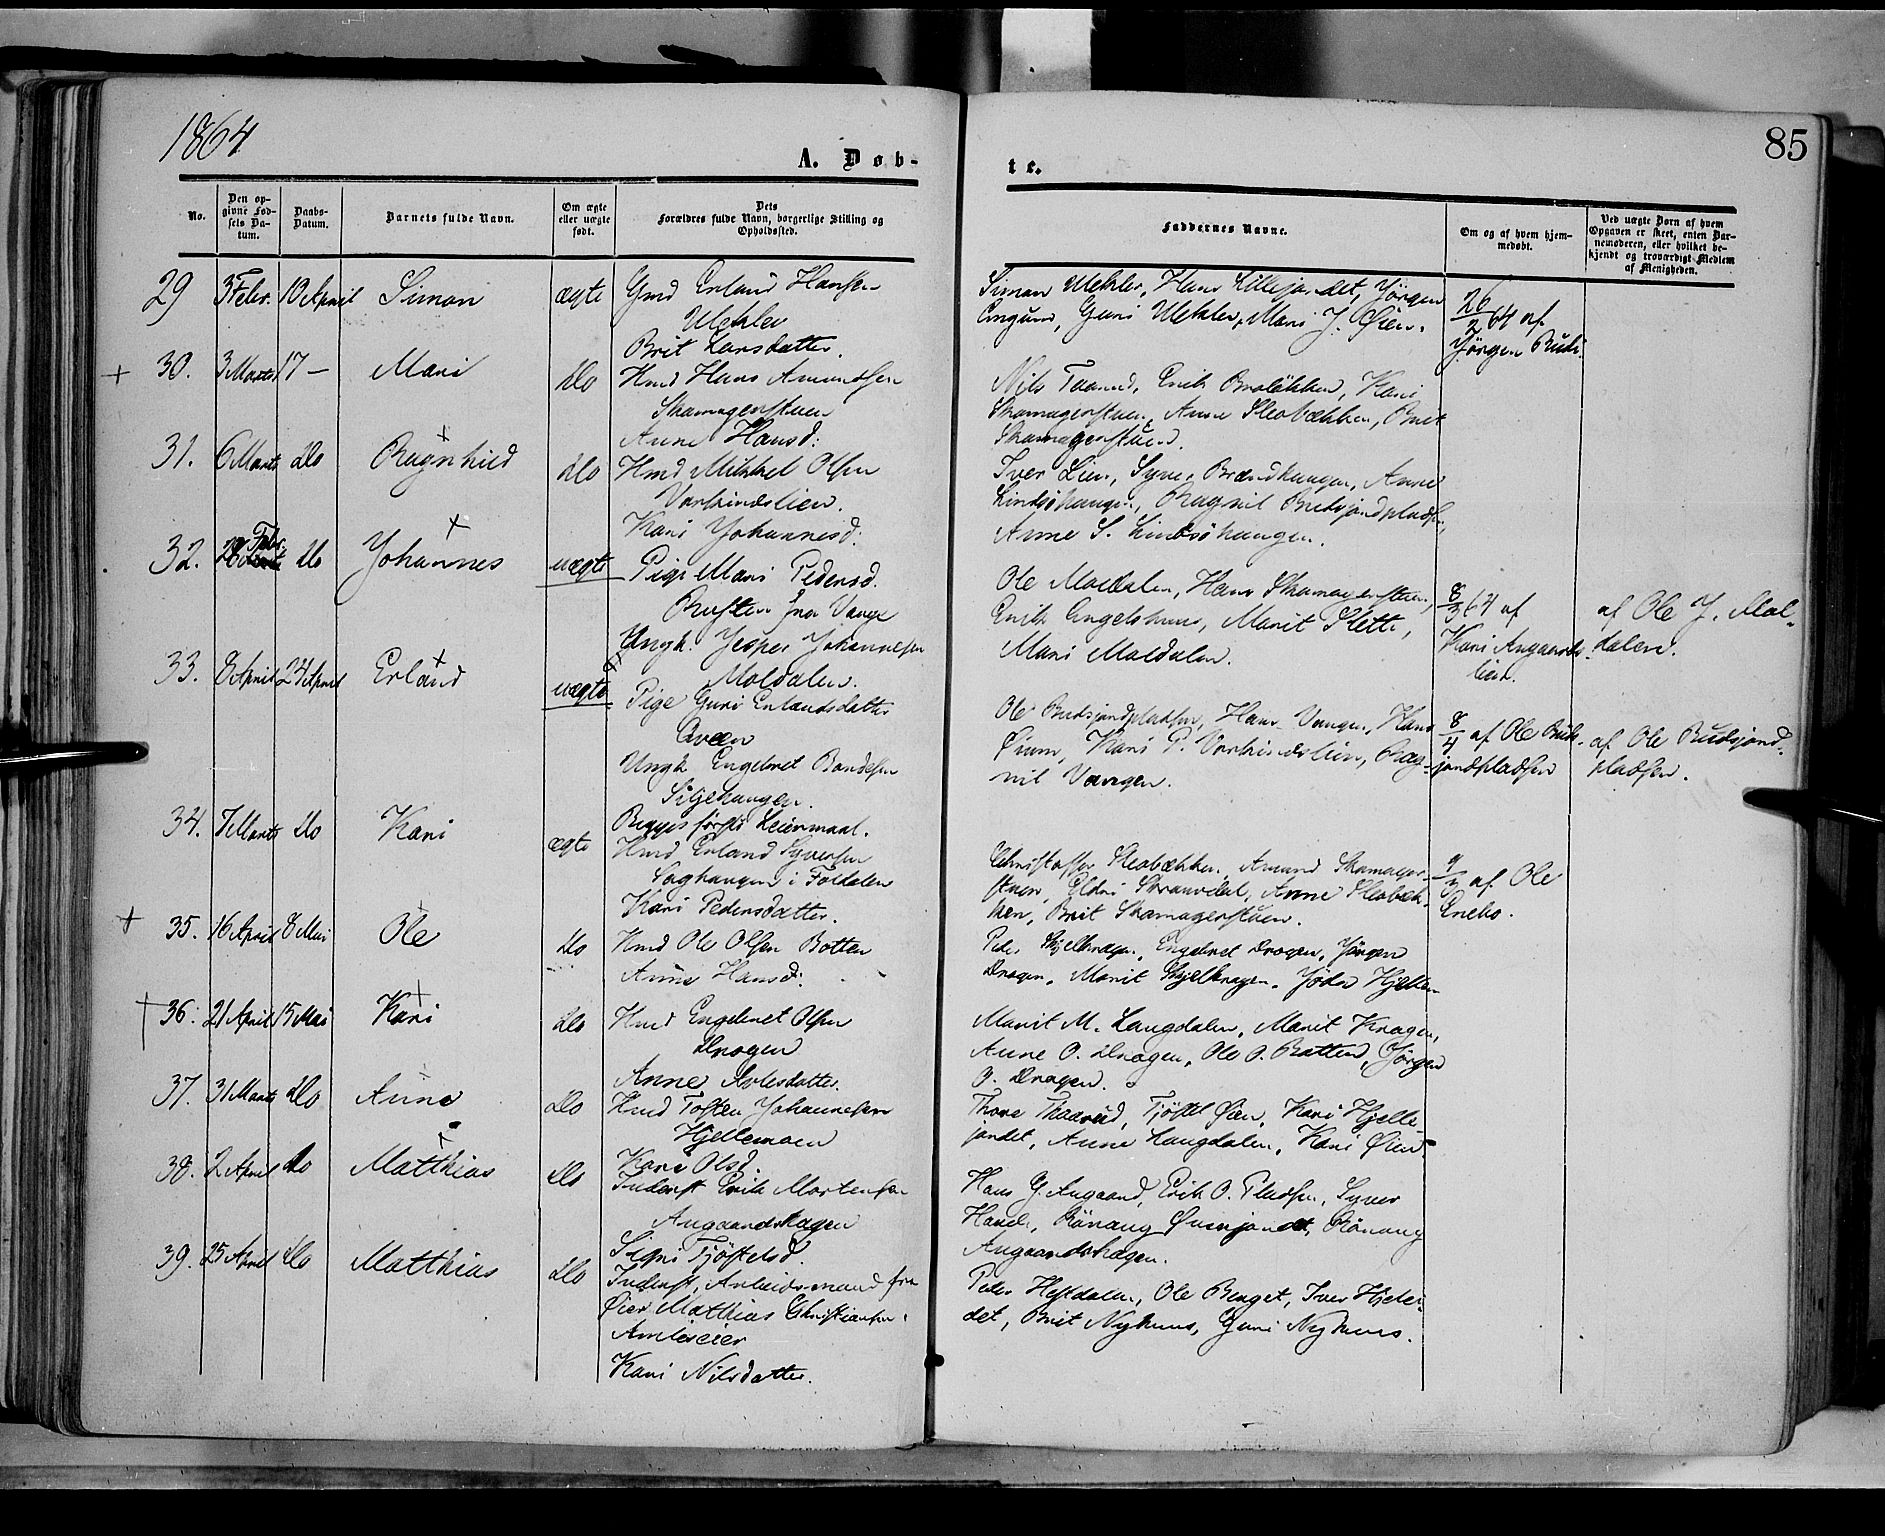 1864
85
A. Døb-
te.
No.
Den op-
givne Fød-
sels Da-
tum.
Daabs-
Datum.
Barnets fulde Navn.
Om ægte
eller uægte
født.
Dets
Forældres fulde Navn, borgerlige Stilling og
Opholdssted.
Faddernes Navne.
Om og af hvem hjem-
medøbt.
Ved uægte Børn af hvem
Opgaven er skeet, enten Bar-
nemoderen, eller hvilket be-
kjendt og troværdigt Medlem
af Menigheden.
29 3 Febr. 10 April Simon ægte Gmd Erland Hansen
Brit Larsdatter.
Simon Hans Lillejordet, Jörgen
Guri Mari J. Øien.
26/2 64 af
Jörgen Rudi
30. 3 Marts 17 – Mari do Hmd Hans Amundsen
Skamagerstuen
Anne Hansd:
Nils Taaend, Erik Braløkken, Kari
Skamagerstuen, Anne Sleobækken, Brit
Skamagerstuen.
31. 6 Marts do Ragnhild do Hmd Mikkel Olsen
Varkindslien.
Kari Johannesd:
Iver Lien, Syver Brændhaugen, Anne
Lindsöhaugen, Ragnil Budsjordpladsen,
Anne S. Lindsöhaugen.
32. 28 Febr. do Johannes uægte Pige Mari Pedersd.
Rusten fra Vaage
Ungk. Jesper Johannesen
Moldalen.
Ole Moldalen, Hans Skamagerstuen,
Erik Engelshuus, Marit Slette,
Mari Moldalen.
8/3 64 af
Kari Angaards-
lien.
af Ole J. Mol-
dalen.
33. 8 April 24 April Erland uægte Pige Guri Erlandsdatter
Ungk Engebret Bendesen
Siljehaugen.
Begges förste Leiermaal.
Ole Budsjordpladsen, Hans Vangen, Hans
Øium, Kari P. Varkindslien, Rag-
nil Vangen.
8/4 af Ole Buds-
jordpladsen
af Ole Budsjord-
pladsen.
34. 7 Marts do Kari ægte Hmd Erland Syversen
Loghaugen i Foldalen
Kari Pedersdatter.
Christoffer Sleobækken, Amund Skamager-
stuen, Eldri Skraavdal, Anne Sleobæk-
ken, Brit Skamagerstuen.
9/3 af Ole
Enebo.
35. 16 April 8 Mai Ole do Hmd Ole Olsen Botten
Anne Hansd:
Peder Skjelkragen, Engebret Dragen, Jörgen
Dragen, Marit Skjelkragen, Jödis Hjelle
36. 21 April 15 Mai Kari do Hmd Engebret Olsen
Dragen
Anne Avlesdatter.
Marit M. Laugdalen, Marit Kragen,
Anne O. Dragen, Ole O. Botten, Jörgen
O. Dragen.
37. 31 Marts do Anne do Hmd Tosten Johannesen
Hjellemoen
Kari Olsd.
Thore Thaarud, Tjöstel Øien, Kari Hjelle-
jordet, Anne Laugdalen, Kari Øien.
38. 2 April do Matthias do Inderst Erik Mortensen
Angaardshagen
Signi Tjöstelsd.
Hans G. Angaard, Erik O. Pladsen, Syver
Haugen, Rönnaug Øversjordet, Rönnaug
Angaardshagen.
39. 25 April do Matthias do Inderst, Arbeidsmand fra
Øier Matthias Christiansen
Amlieseier
Kari Nilsdatter.
Peder Hesdalen, Ole Berget, Iver Hjelle-
det, Brit Nyhuus, Guri Nyhuus.